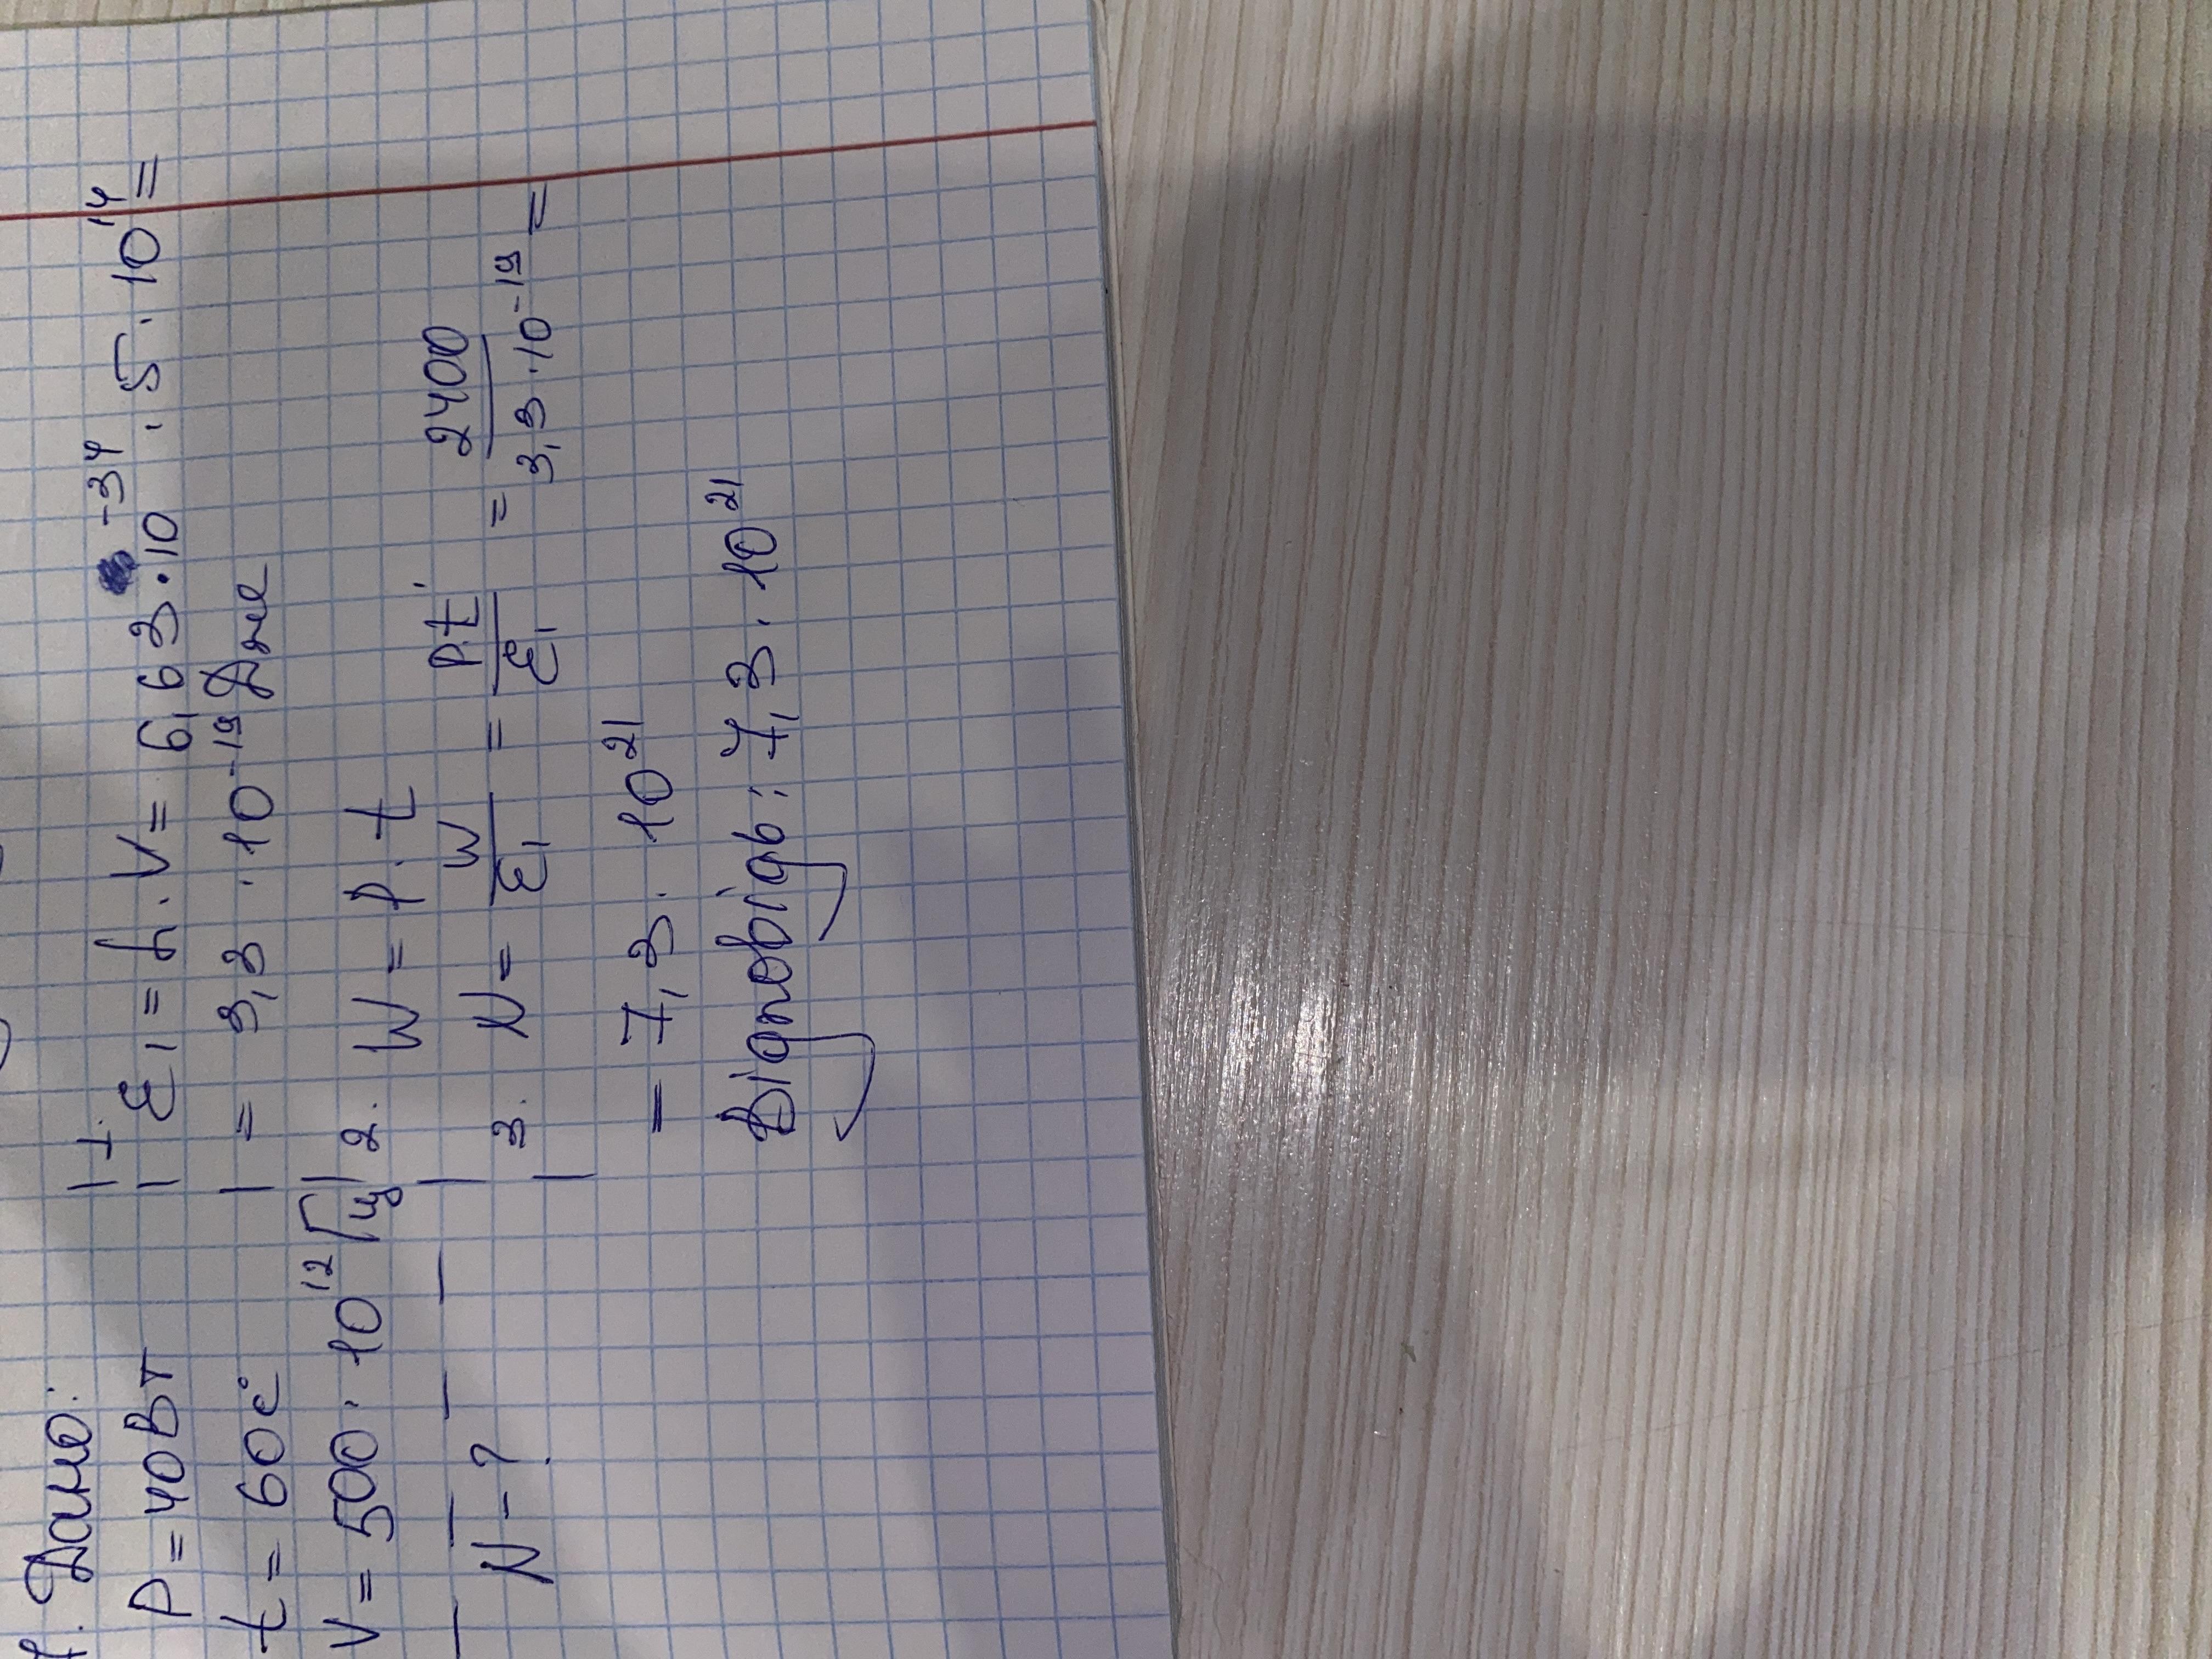 Дано:
P = 40Вт
t = 60с
V = 500 · 10¹² Гц
N - ?
1.
E₁ = h · V = 6,63 · 10⁻³⁴ · 5 · 10¹⁴ =
= 3,3 · 10⁻¹⁹ Дже
2. W = P · t
3. N = W/E₁ = P·t/E₁ = 2400/3,3 · 10⁻¹⁹ =
= 7,3 · 10²¹
Відповідь: 7,3 · 10²¹